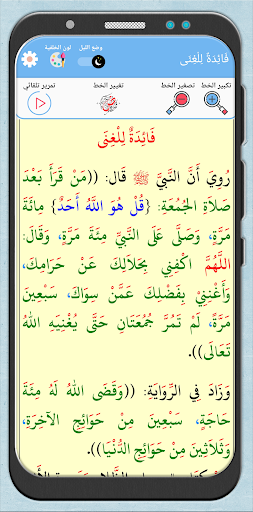 فَائِدَةٌ لِلْغِنَى
وضع الليل
لون الخلفية
تكبير الخط
تصغير الخط
تغيير الخط
تمرير تلقائي
فَائِدَةٌ لِلْغِنَى
رُوِيَ أَنَّ النَّبِيَّ ﷺ قَال: ((مَنْ قَرَأَ بَعْدَ
صَلَاةِ الجُمُعَةِ: {قُلْ هُوَ اللَّهُ أَحَدٌ} مِائَةَ
مَرَّةٍ، وَصَلَّى عَلَى النَّبِيِّ مِئَةَ مَرَّةٍ، وَقَالَ:
اللَّهُمَّ اكْفِنِي بِحَلَالِكَ عَنْ حَرَامِكَ،
وَأَغْنِنِي بِفَضْلِكَ عَمَّنْ سِوَاكَ، سَبْعِينَ
مَرَّةً، لَمْ تَمُرَّ جُمُعَتَانِ حَتَّى يُغْنِيَهِ اللهُ
تَعَالَى)).
وَزَادَ فِي الرِّوَايَةِ: ((وَقَضَى اللهُ لَهُ مِئَةَ
حَاجَةٍ، سَبْعِينَ مِنْ حَوَائِجِ الآخِرَةِ،
وَثَلَاثِينَ مِنْ حَوَائِجِ الدُّنْيَا)).